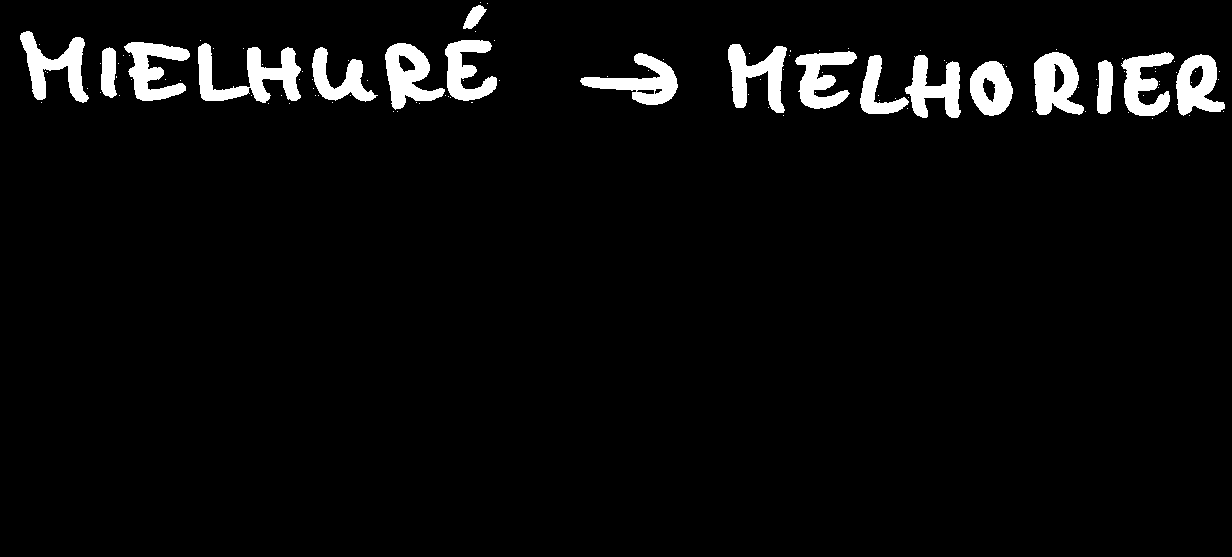 MIELHURÉ → MELHORIER